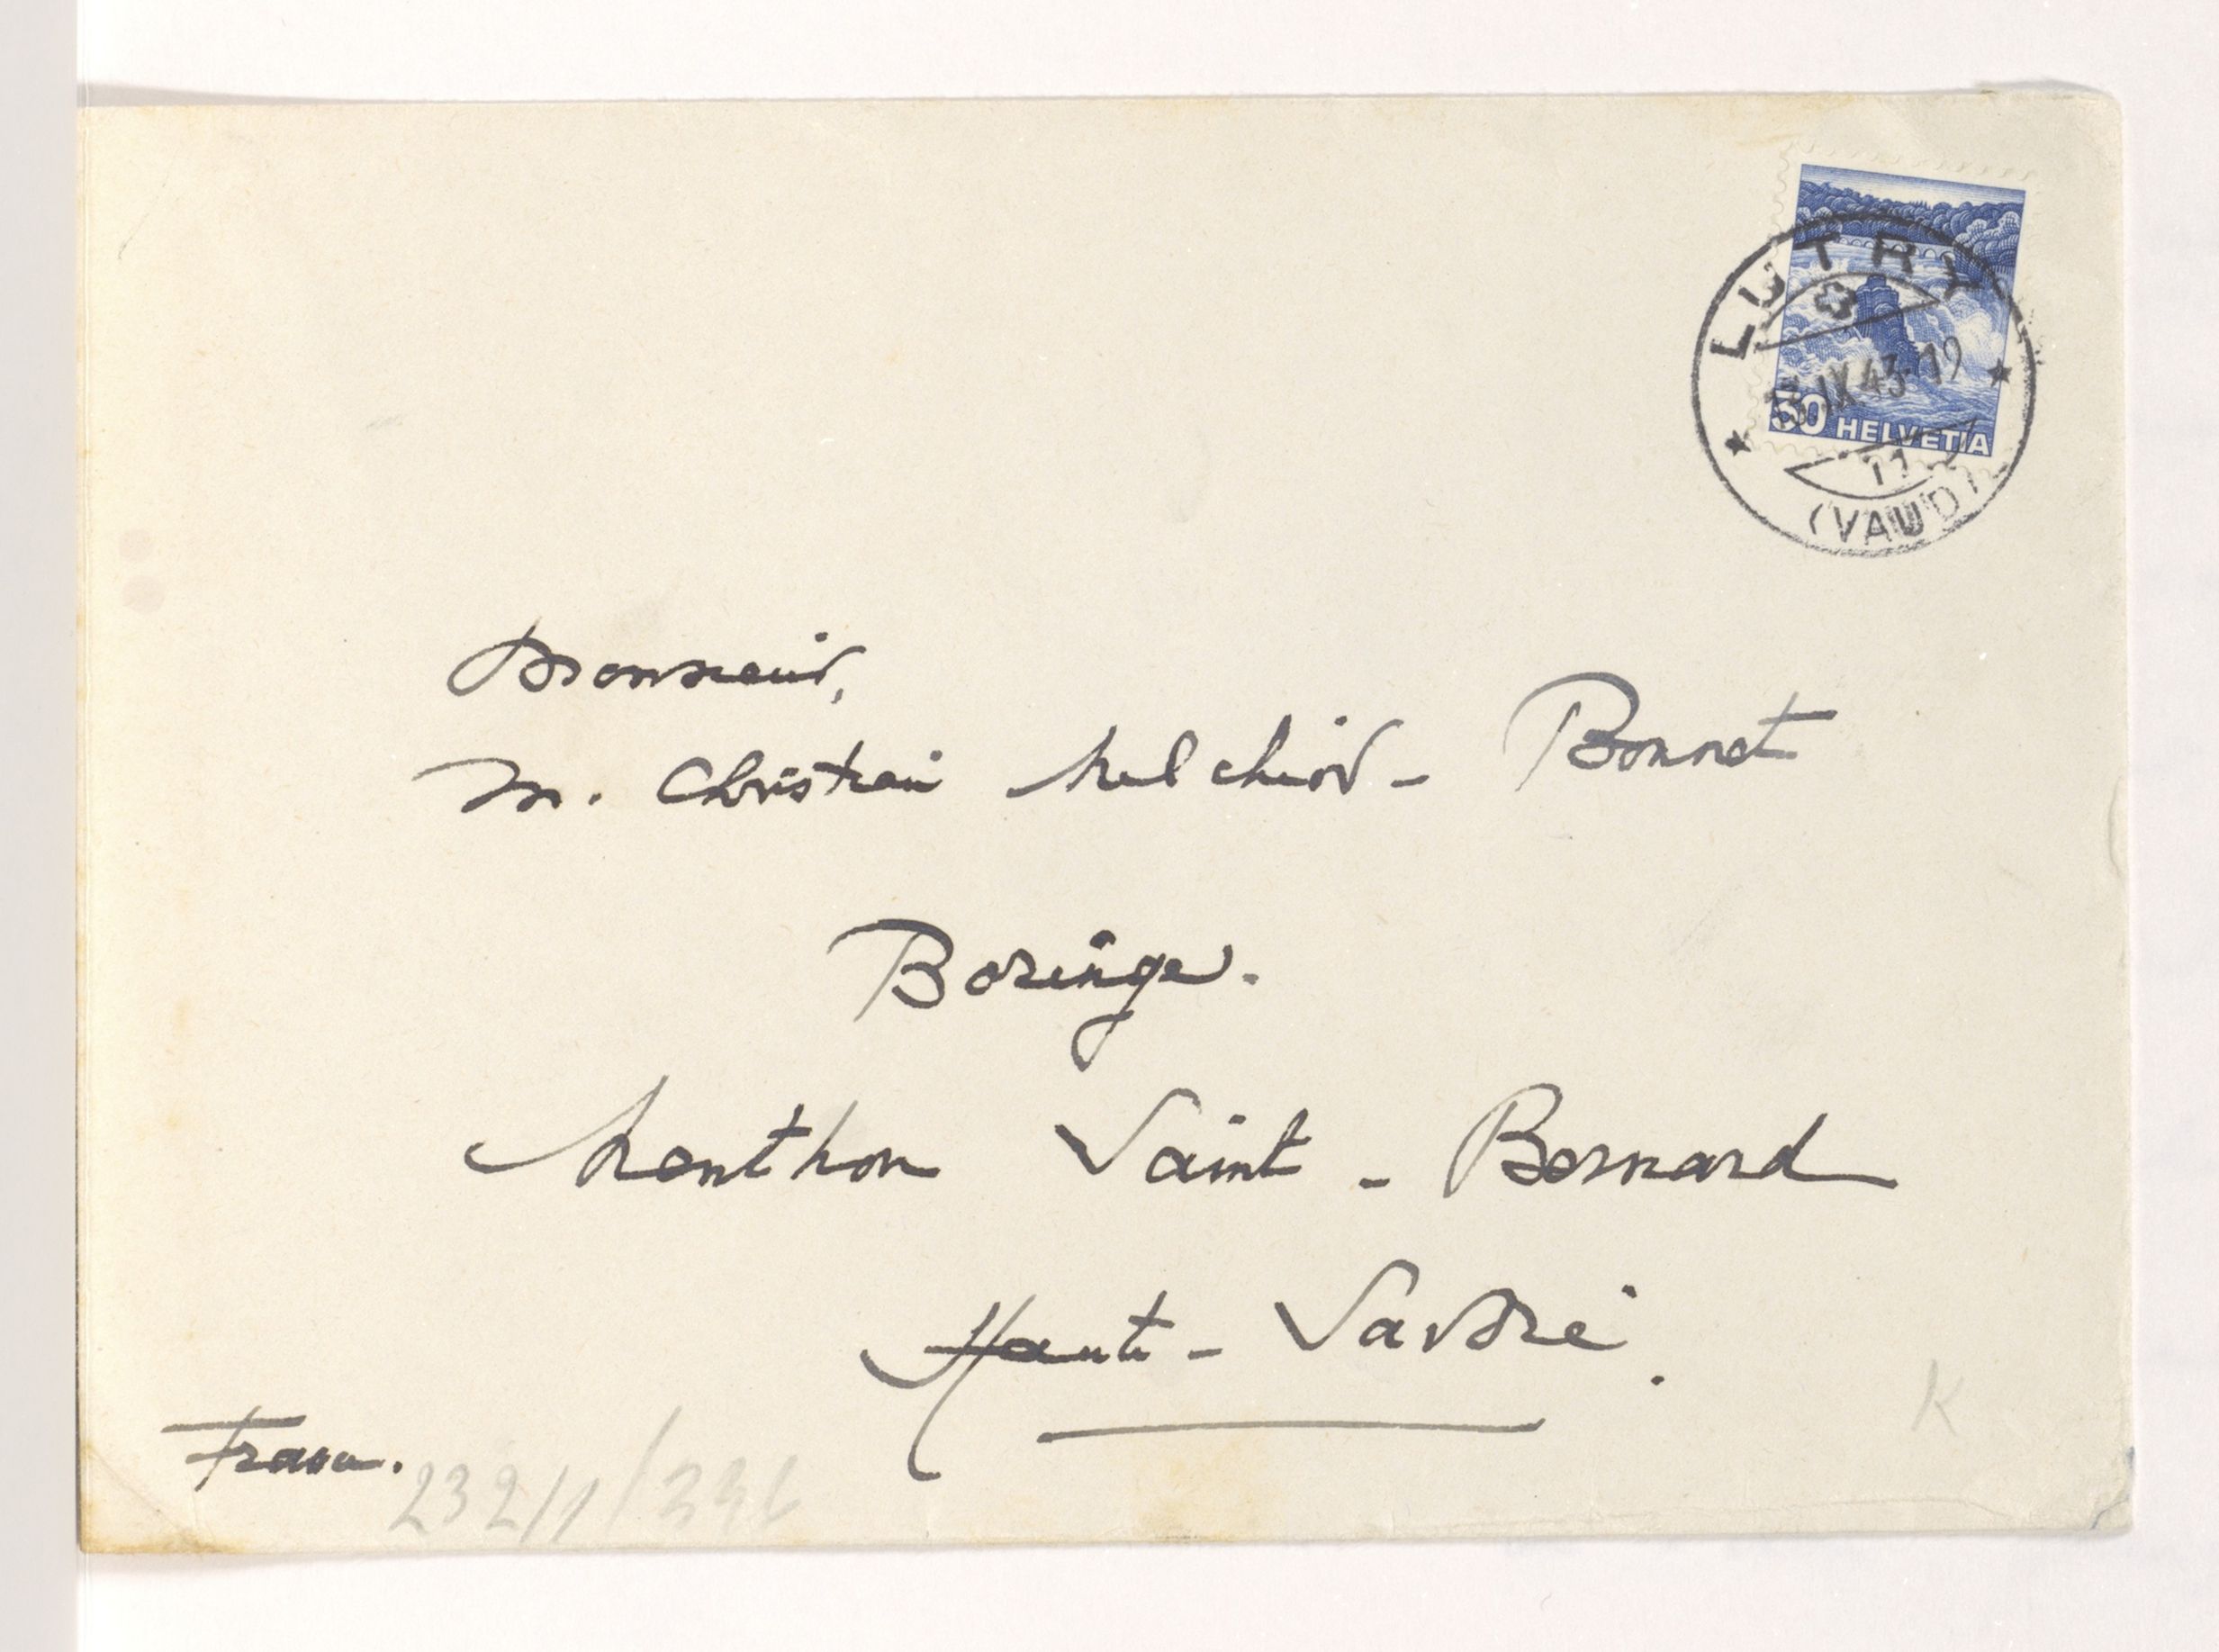 LUTRY
13.IX.43-19
30 HELVETIA
11
(VAUD)
Monsieur,
M. Christian Melchior-Bonnet
Boringe.
Menthon Saint-Bernard
Haute-Savoie.
France.
232/1/
K